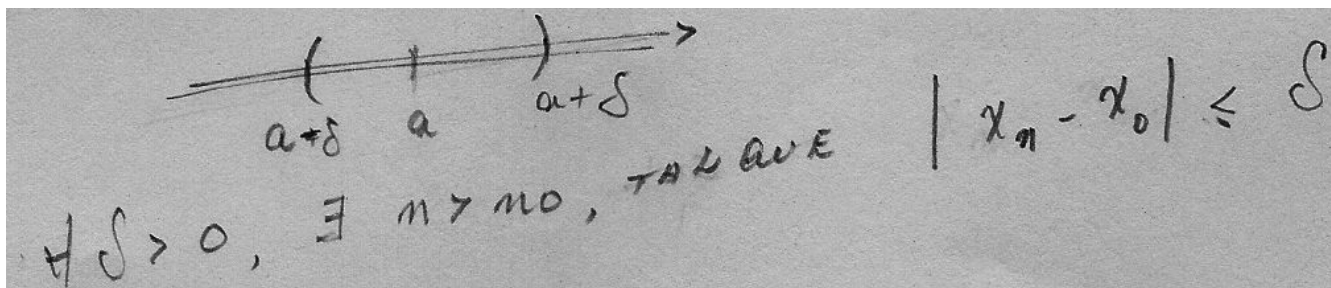 a-δ a a+δ
∀ δ > 0, ∃ n > n0, TAL QUE | xₙ - x₀ | ≤ δ